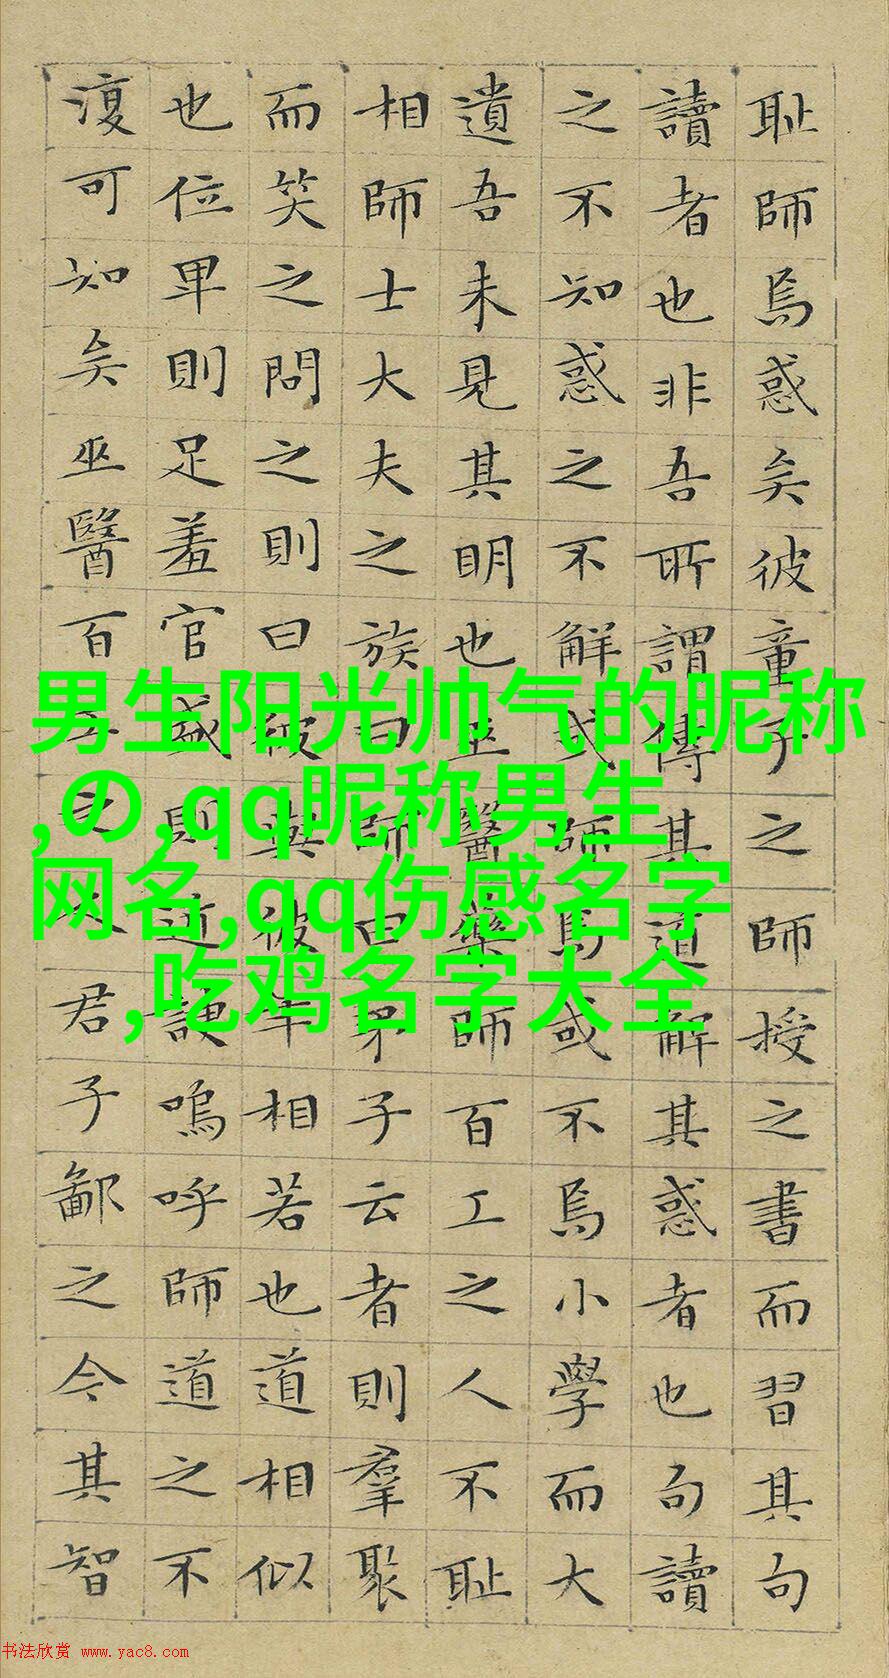 耻師焉惑矣彼童子之師授之書而習其句
讀者也非吾所謂傳其道解其惑者也句讀
之不知惑之不解或師焉或不焉小學而大
遺吾未見其明也巫醫藥師百工之人不耻
相師士大夫之族曰師曰弟子云者則羣聚
而笑之問之則曰彼與彼年相若也道相似
也位卑則足羞官盛則近諛嗚呼師道之不
復可知矣巫醫百工之人君子鄙之今其智
男生阳光帅气的昵称
,の,qq昵称男生
网名,qq伤感名字
,吃鸡名字大全
书法欣赏 www.yac8.com